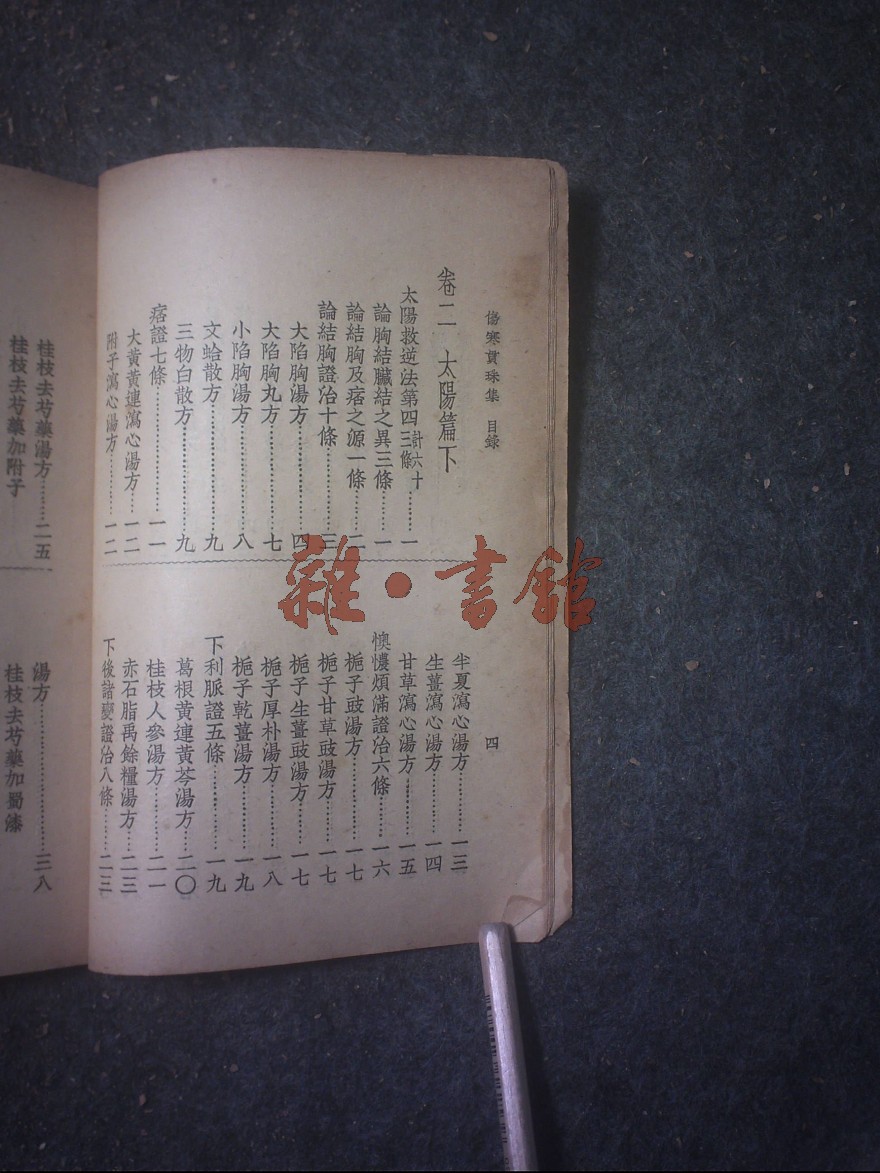 傷寒貫珠集 目錄
四
卷二 太陽篇下
太陽救逆法第四計六十三條………一
論胸結臟結之異三條………一
論結胸及痞之源一條………二
論結胸證治十條………三
大陷胸湯方………四
大陷胸丸方………七
小陷胸湯方………八
文蛤散方………九
三物白散方………九
痞證七條………一一
大黃黃連瀉心湯方…一二
附子瀉心湯方………一二
半夏瀉心湯方………一三
生薑瀉心湯方………一四
甘草瀉心湯方………一五
懊憹煩滿證治六條……一六
梔子豉湯方………一七
梔子甘草豉湯方……一七
梔子生薑豉湯方……一七
梔子厚朴湯方………一八
梔子乾薑湯方………一九
下利脈證五條………一九
葛根黃連黃芩湯方…二〇
桂枝人參湯方………二一
赤石脂禹餘糧湯方…二三
下後諸變證治八條……二三
桂枝去芍藥湯方……二五
桂枝去芍藥加附子
湯方………三八
桂枝去芍藥加蜀漆
雜·書館